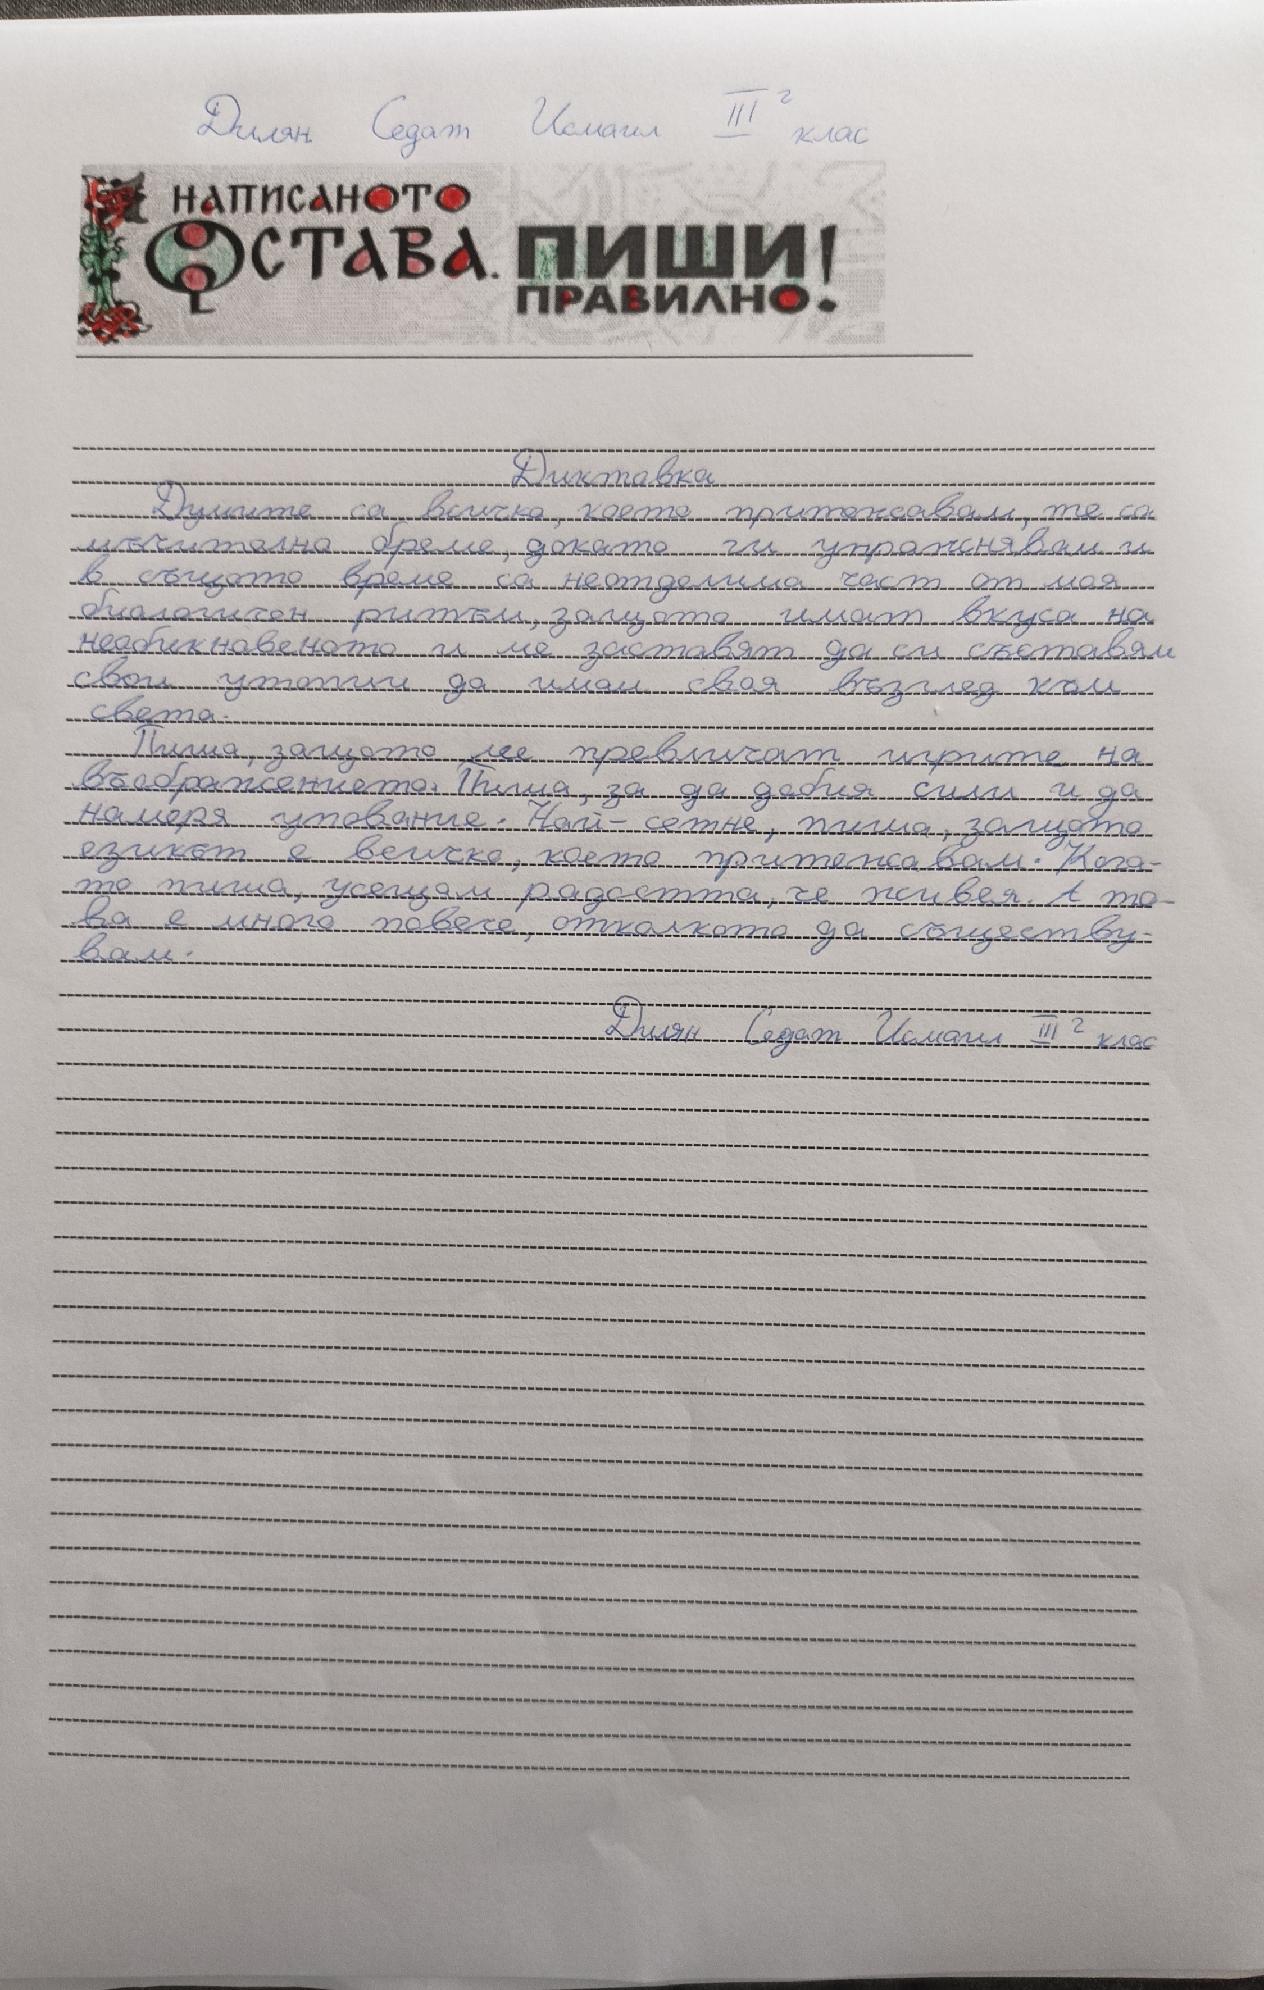 Дилян Седат Исмаил III г клас
НАПИСАНОТО
ОСТАВА. ПИШИ
ПРАВИЛНО!
Диктовка
Думите са всичко, което притежавам, те са
мъчително бреме, докато ги упражнявам и
в същото време са неотделима част от моя
биологичен ритъм, защото имат вкуса на
необикновеното и ме заставят да си съставям
свои утопии да имам своя възглед към
света.
Пиша, защото ме превличат игрите на
въображението. Пиша, за да добия сили и да
намеря упование. Най-сетне, пиша, защото
езикът е всичко, което притежавам. Кога-
то пиша, усещам радостта, че живея. А то-
ва е много повече, отколкото да съществу-
вам.
Дилян Седат Исмаил III г клас